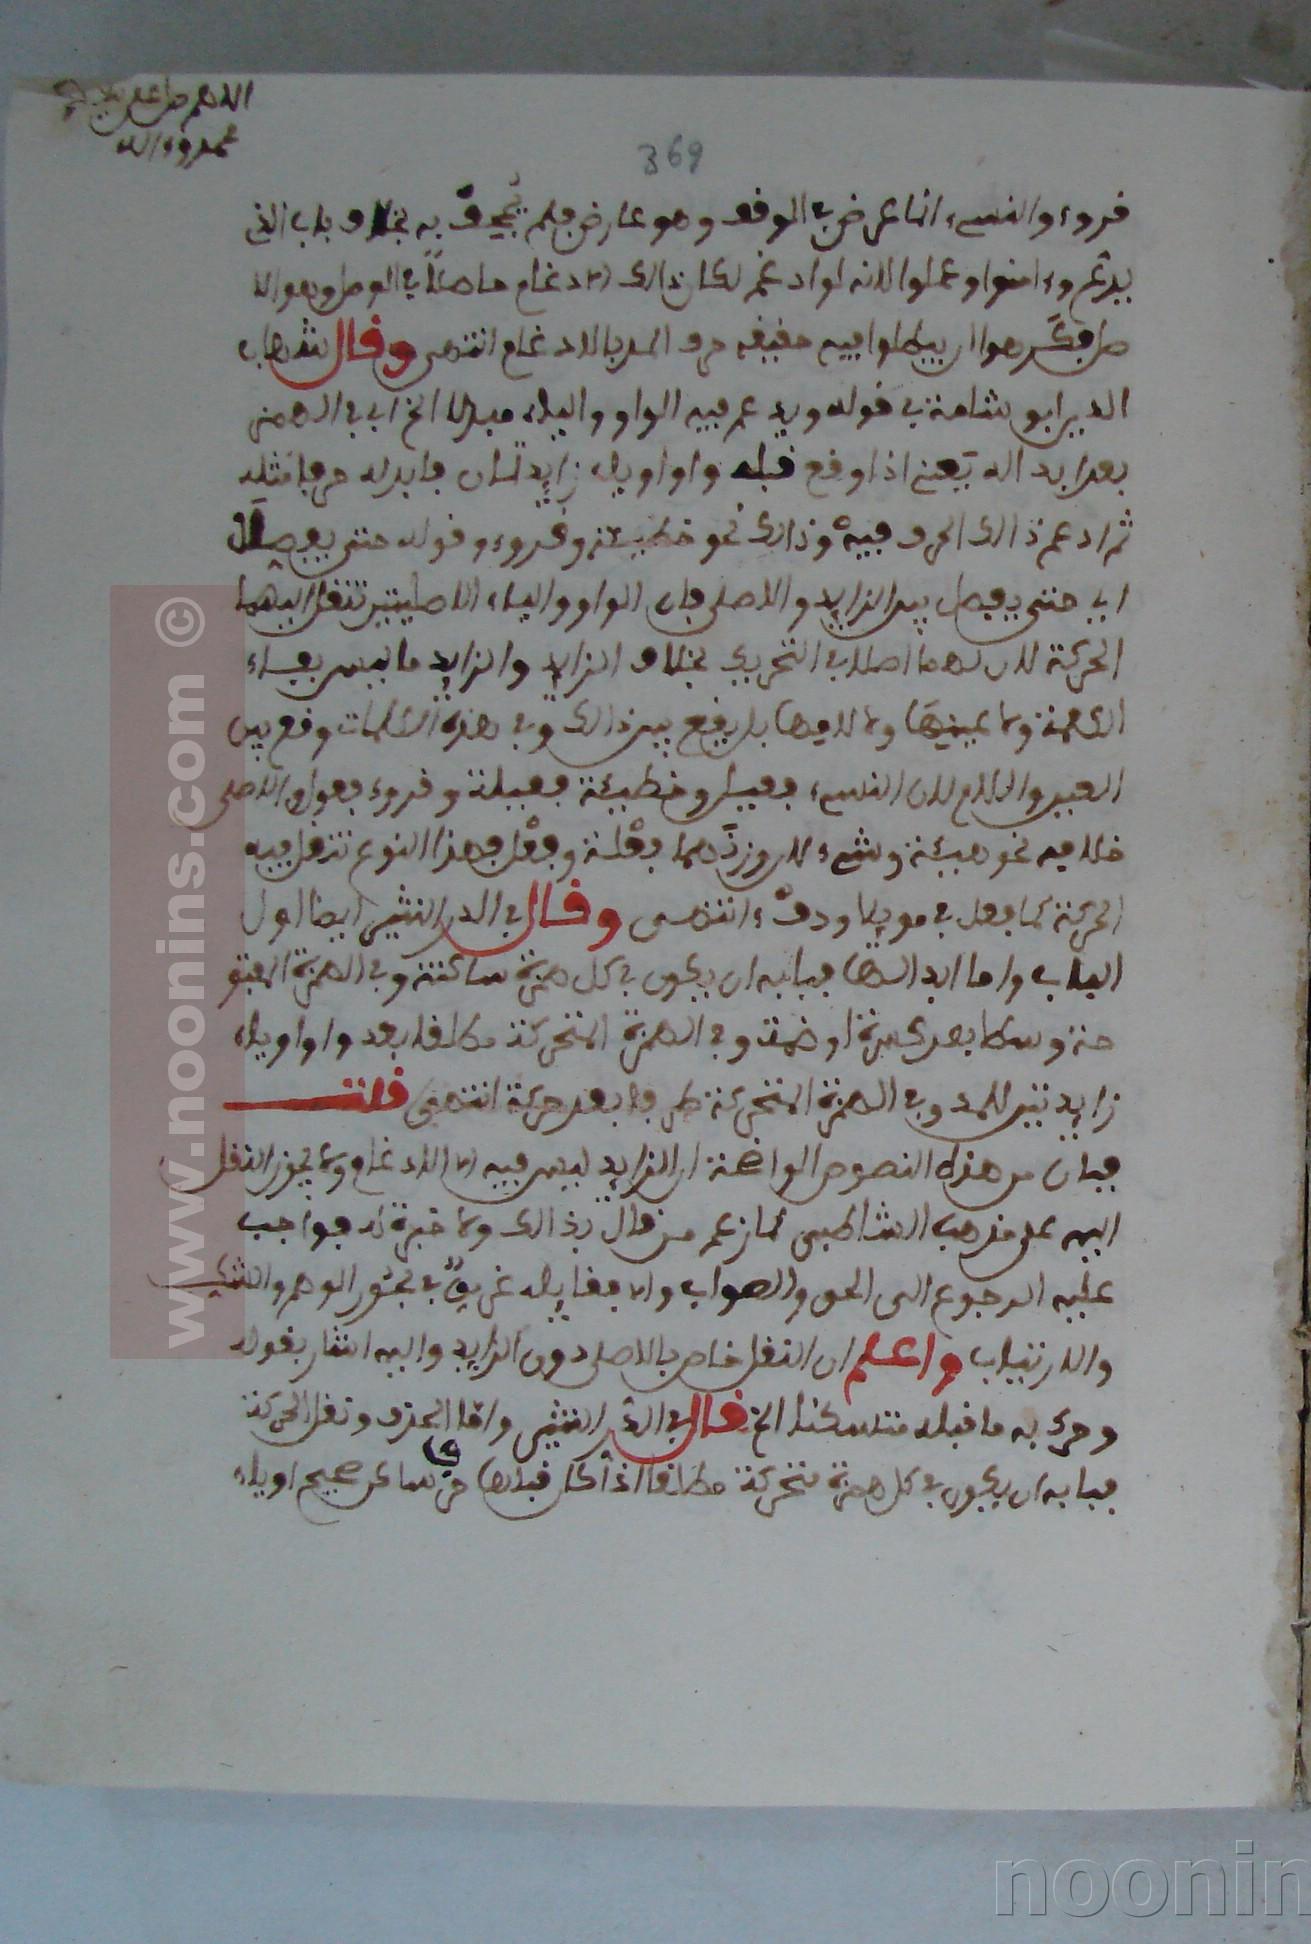 اللهم صل على
محمد وءاله
369
قروء والنسىء انما عرض في الوقف وهو عارض فلم يجحف به بخلاف باب الذي
يدغم وءامنوا وعملوا لانه لو ادغم لكان ذالك الادغام حاصلاً في الوصل وهو الا
صل فكَرهوا ان يبطلوا فيه حقيقة حرف المد بالادغام انتهى وقال شهاب
الدين ابو شامة في قوله ويدغم فيه الواو والياء مبدلا الخ اي في الهمز
بعد ابداله يعني اذا وقع قبله واو او ياء زايدتان فابدله حرفا مثله
ثم ادغم ذالك الحرف فيه وذالك نحو خطيئة وقروء وقوله حتى يفصلا
اي حتى يفصل بين الزايد والاصلي فان الواو والياء الاصليتين تنقل اليهما
الحركة لان لهما اصلا في التحريك بخلاف الزايد والزايد ما ليس بفاء
الكلمة ولا عينها ولا لامها بل يقع بين ذالك وفي هذه الكلمات وقع بين
العين واللام لان النسىء فعيل وخطيئة فعيلة وقروء فعول والاصلي
خلافه نحو هيئة وشىء لان وزنهما فعْلة وفعْل فهذا النوع تنقل فيه
الحركة كما فعل في موئلا ودفْء انتهى وقال في الدر النثير ايضا اول
الباب واما ابدالها فبابه ان يكون في كل همزة ساكنة وفي الهمزة المفتو
حة وسطا بعد كسرة او ضمة وفي الهمزة المتحركة مطلقا بعد واو او ياء
زايدتين للمد وفي الهمزة المتحركة طرفا بعد حركة انتهى قلت
فبان من هذه النصوص الواضحة ان الزايد ليس فيه الا الادغام ولا يجوز النقل
اليه على مذهب الشاطبي كما زعم من قال بذالك ولا خبرة له فواجب
عليه الرجوع الى الحق والصواب والا فقايله غريق في بحور الوهم والشك
والارتياب واعلم ان النقل خاص بالاصلي دون الزايد واليه اشار بقوله
وحرك به ما قبله متسكنا الخ قال في الدر النثير واما الحذف ونقل الحركة
فبابه ان يكون في كل همزة متحركة مطلقا اذا كان قبلها حرف ساكن صحيح او ياء
www.noonins.com ©
noonin